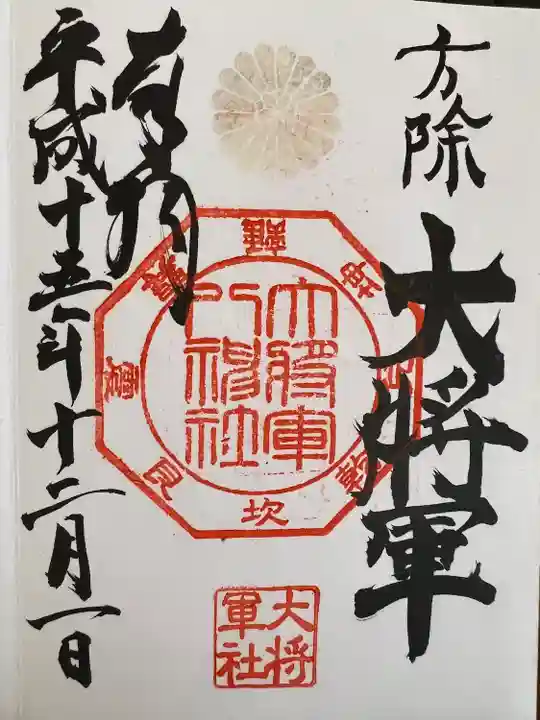 方除
大将軍
奉拝
平成十五年十二月一日
大將軍
八神社
坎
艮
乾
大将
軍社